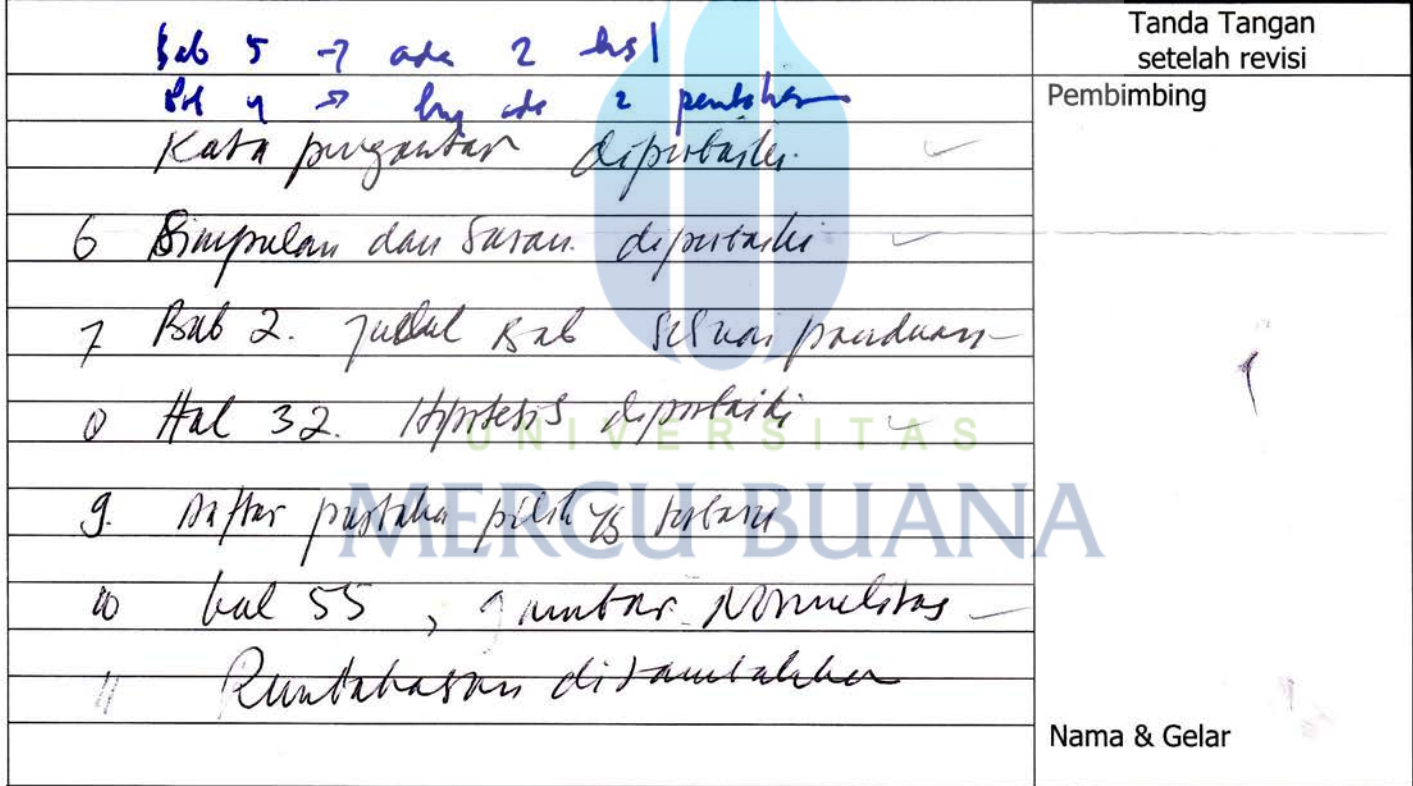 Bab 5 → ada 2 hsl
Bab 4 → ada 2
Kata pengantar diperbaiki.
6 Simpulan dan Saran diperbaiki
7 Bab 2. Judul Bab sesuai panduan
8 Hal 32. Hipotesis diperbaiki
9. Daftar pustaka pilih yg terbaru
10 hal 55, gambar Normalitas
11 Pembahasan ditambahkan
UNIVERSITAS
MERCU BUANA
Tanda Tangan
setelah revisi
Pembimbing
Nama & Gelar